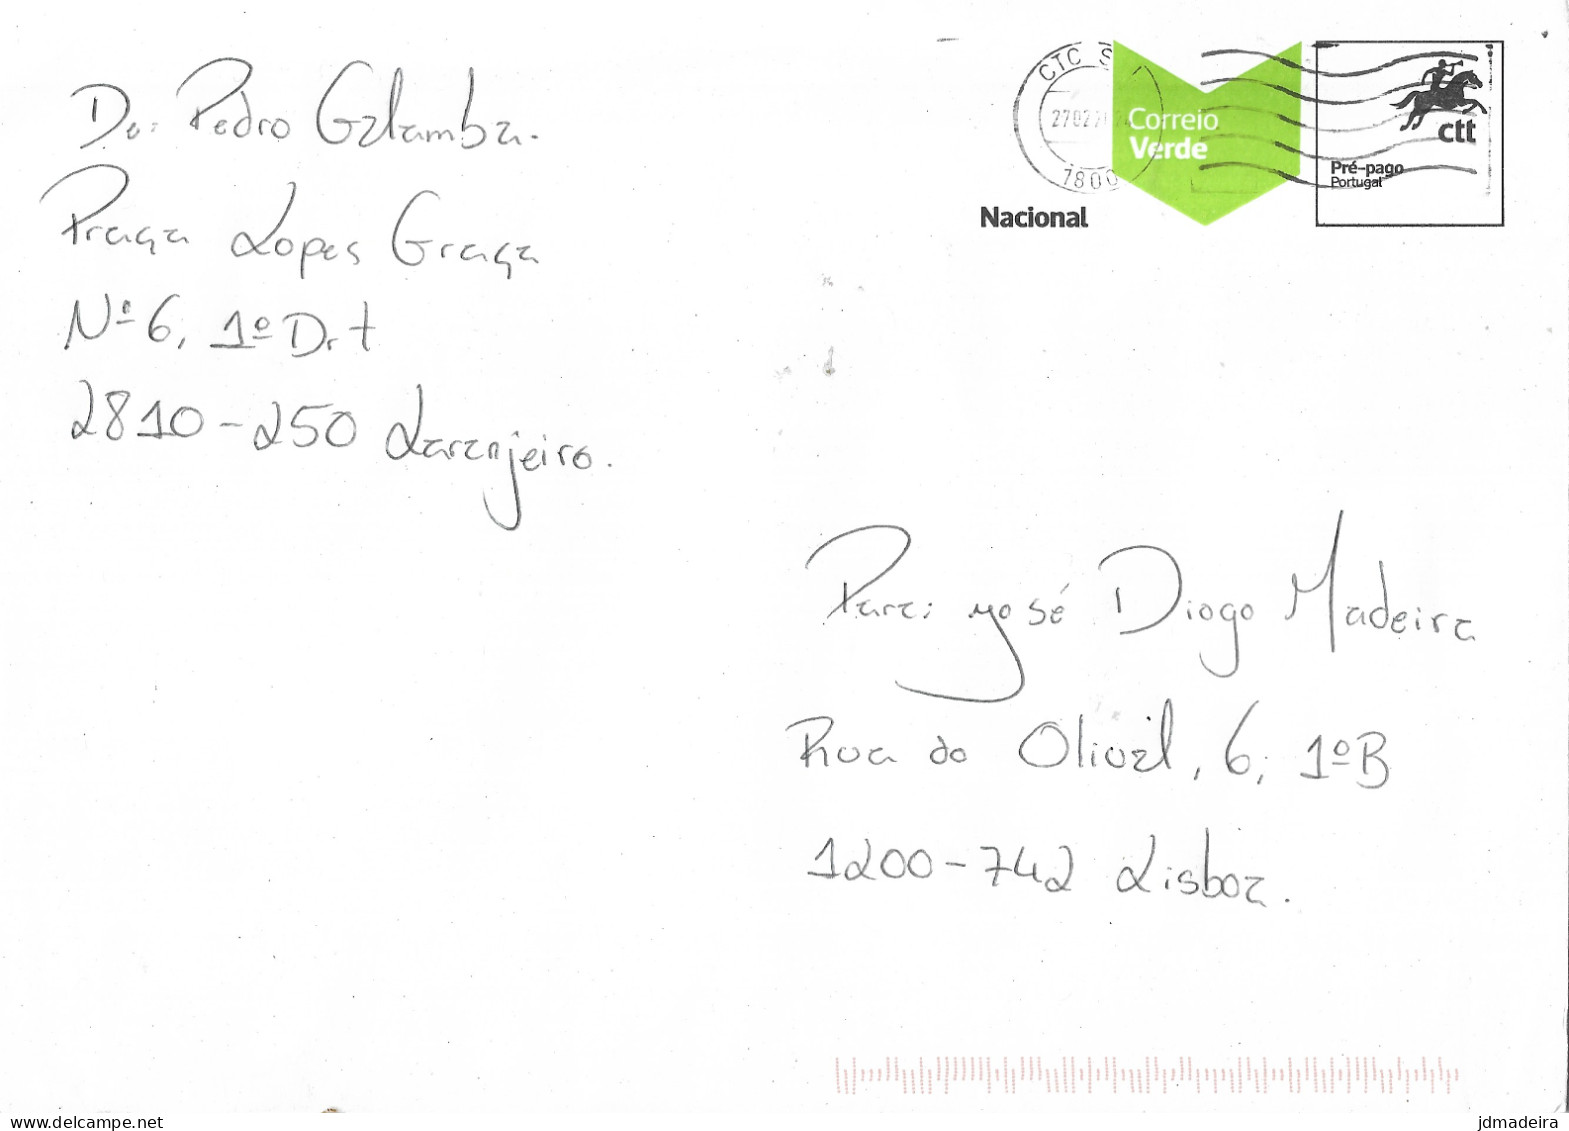 De: Pedro Galamba.
Praça Lopes Graça
Nº 6, 1º Drt
2810-250 Laranjeiro.
CTC S
7800
Correio
Verde
Nacional
ctt
Pré-pago
Portugal
Para: José Diogo Madeira
Rua do Olival, 6, 1º B
1200-742 Lisboa.
delcampe.net
jdmadeira